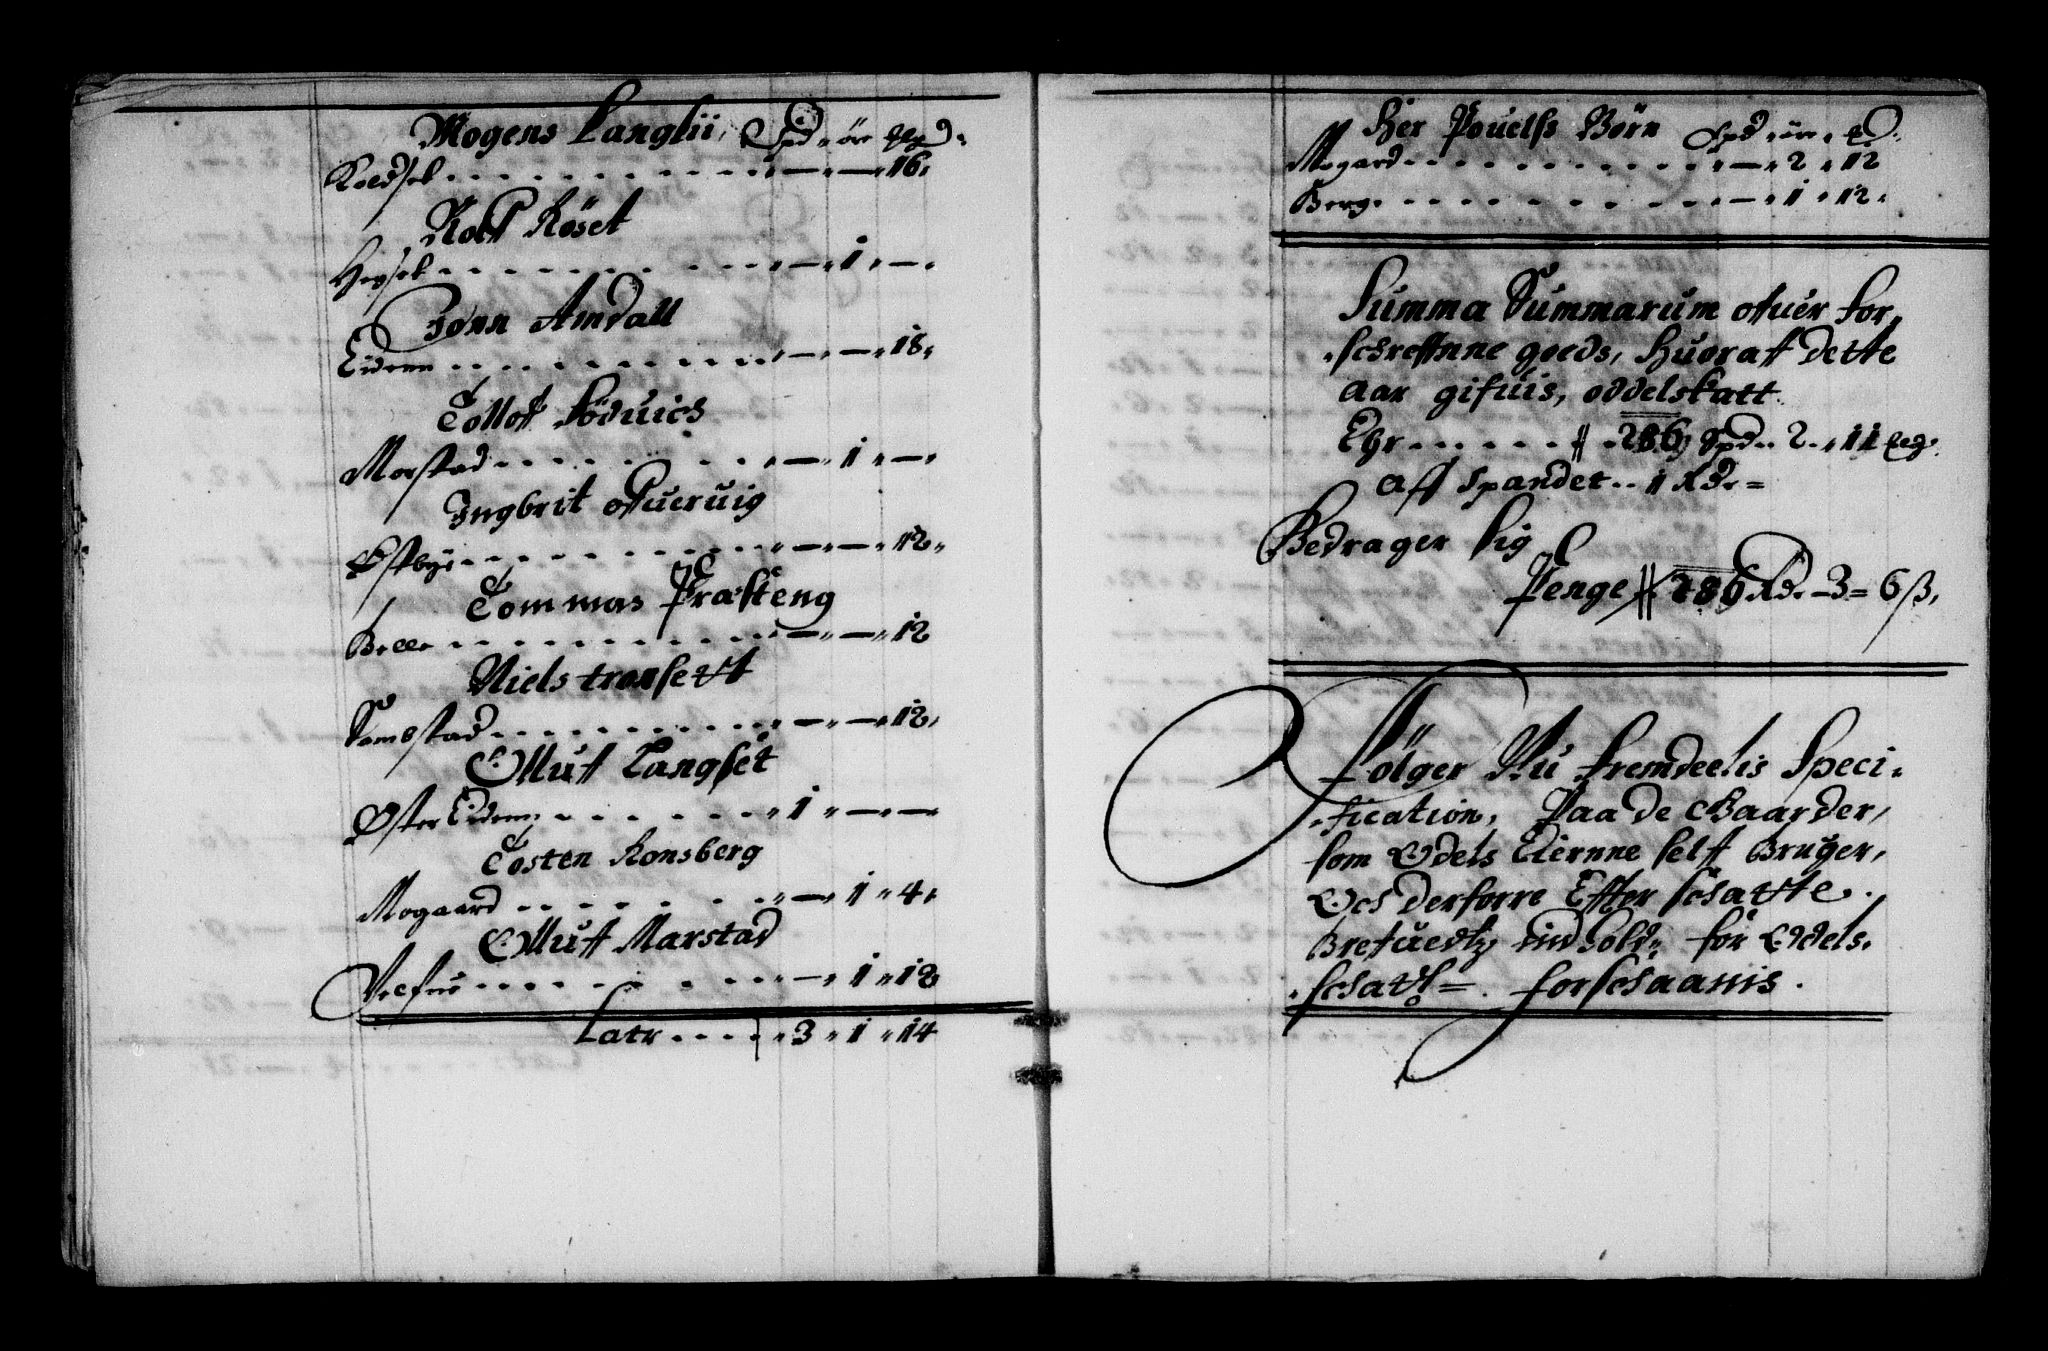 Mogens Langlii, Spd " öre Pgd.
Koldsek . . . . . . . . . . — " — " 16.
Rolf Röset
Hegsek . . . . . . . . . " — " 1 " — "
Jonn Amdall
Eidenn . . . . . . . . . . — " — " 18.
Tollof Söduics
Morstad . . . . . . . . " — " 1 " — "
Ingbrit ofueruig
Østbye . . . . . . . . . . " — " — " 12 "
Tommas Præsteng
Belle . . . . . . . . . . " — " — " 12
Niels tronsett
Sembstad . . . . . . . . . " — " — " 12.
Olluff Langset
Øster Eidenn . . . . . . " 1 " — " —
Tosten Ronsberg
Mogaard . . . . . . . " — " 1 " 4.
Olluff Marstad
. . . . . . . . . " — " 1 " 12
Latr . . . . . " 3 " 1 " 14
Her Pouelss Börn Spd " öre "
Mogard . . . . . . . . . . " — " 2 " 12
Berg . . . . . . . . . . — " 1 " 12 "
Summa Summarum ofuer for,
screffnne goeds, Huoraff dette
aar gifuis, oddelskatt
Ehr . . . . . . 286 Spd .. 2 . " 11 Peg.
aff Spandet .. 1 Rd. =
Bedrager sig
Penge 286 Rd. - 3 = 6 ß.
Fölger Nu fremdeelis Speci,
fication, Paa de Gaarder,
som Odels Eiernne self Bruger,
Och derforre Effter schatte
Brefuedtz indhold " för Oddels,
schatt = . forschaanis .